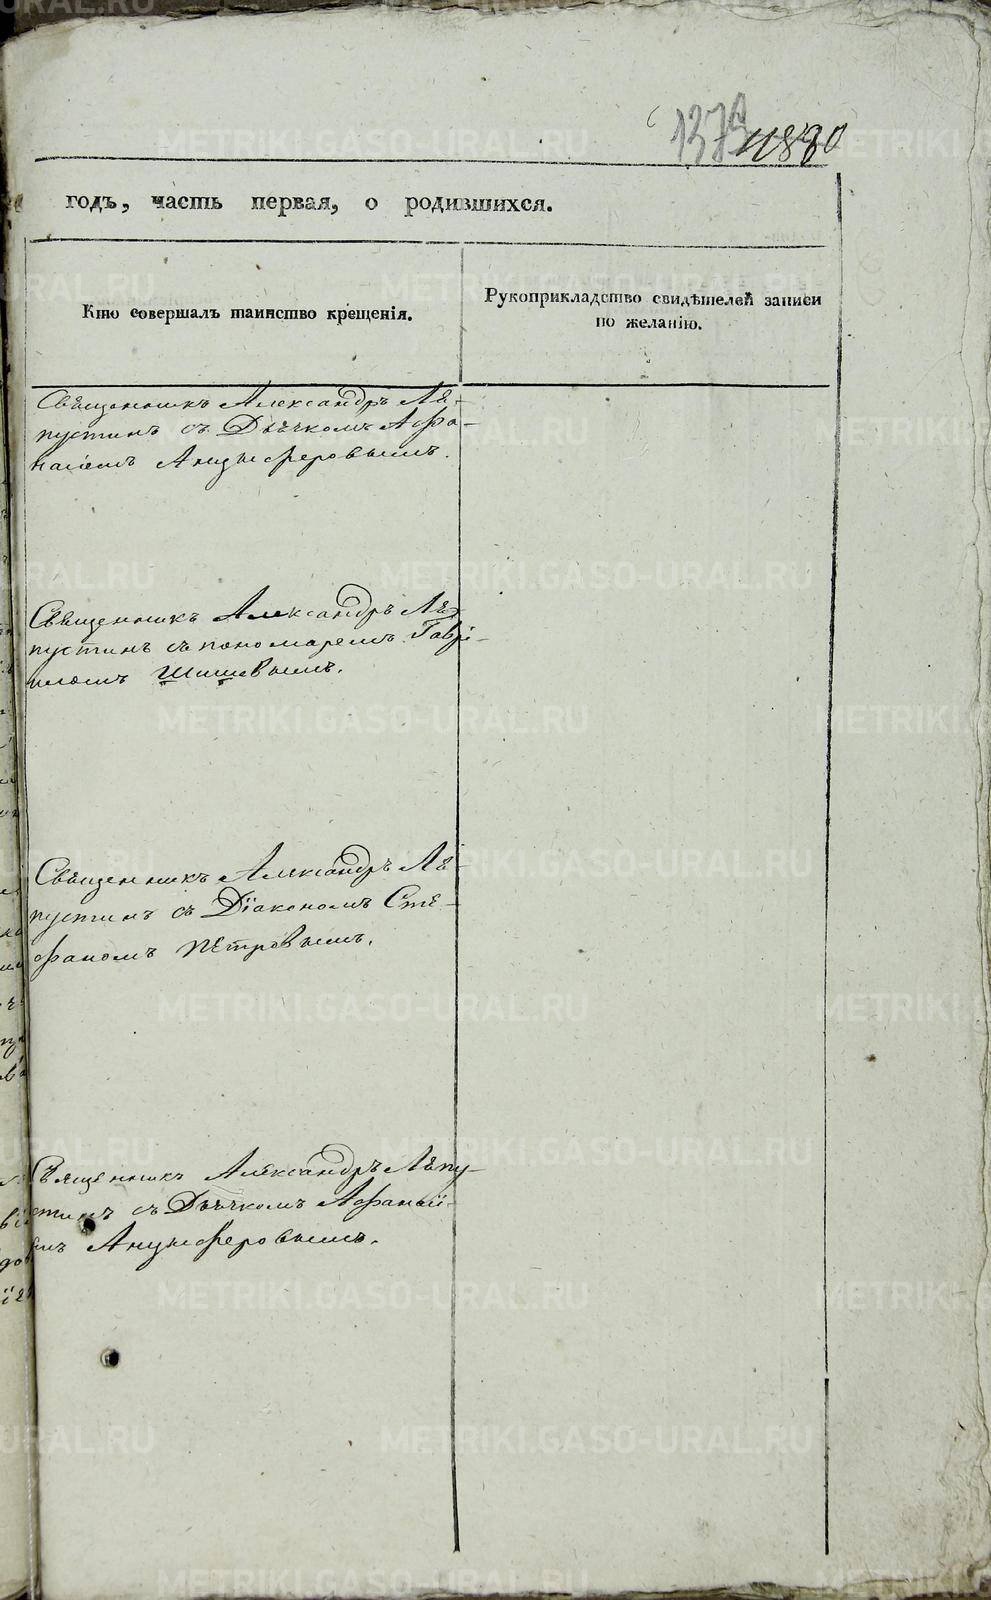 годъ, часть первая, о родившихся.
Кто совершалъ таинство крещенія.
Рукоприкладство свидѣтелей записи
по желанію.
Священникъ Александръ Лѣ-
пустинъ съ Дьячкомъ Афа-
насіемъ Анцыферовымъ.
Священникъ Александръ Лѣ-
пустинъ съ пономаремъ Гаврі-
иломъ Шишевымъ.
Священникъ Александръ Лѣ-
пустинъ съ Діакономъ Сте-
фаномъ Петровымъ.
Священникъ Александръ Лѣпу-
стинъ съ Дьячкомъ Афанасі-
емъ Анцыферовымъ.
METRIKI.GASO-URAL.RU